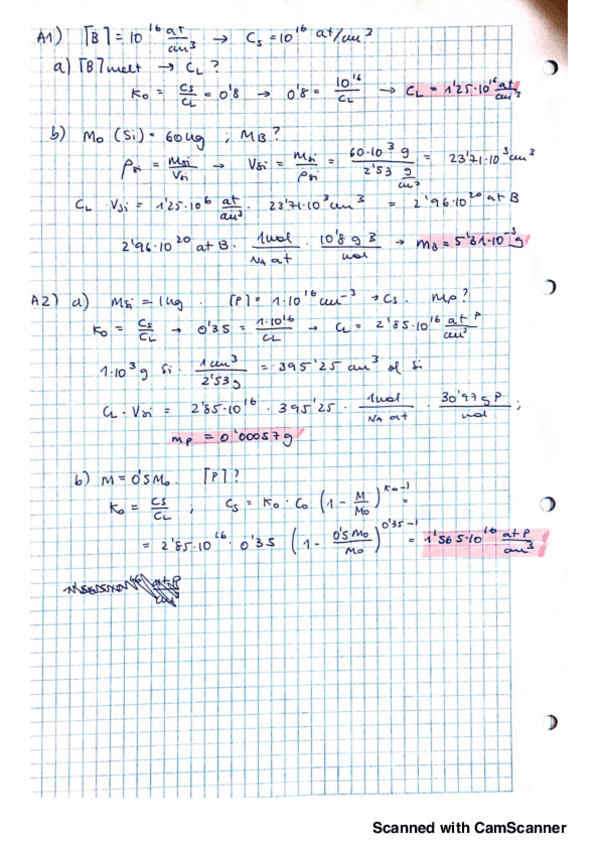 A1) [B] = 10^16 at/cm^3 → Cs = 10^16 at/cm^3
a) [B] melt → CL ?
K0 = Cs/CL = 0'8 → 0'8 = 10^16/CL → CL = 1'25·10^16 at/cm^3
b) M0 (Si) = 60 kg ; MB ?
ρSi = MSi/VSi → VSi = MSi/ρSi = 60·10^3 g / 2'53 g/cm^3 = 23'71·10^3 cm^3
CL · VSi = 1'25·10^6 at/cm^3 · 23'71·10^3 cm^3 = 2'96·10^20 at B
2'96·10^20 at B · 1mol/NA at · 10'8 g B/mol → mB = 5'31·10^-3 g
A2) a) MSi = 1kg . [P] = 1·10^16 cm^-3 → Cs. mp ?
K0 = Cs/CL → 0'35 = 1·10^16/CL → CL = 2'85·10^16 at P/cm^3
1·10^3 g Si · 1 cm^3/2'53 g = 395'25 cm^3 of Si
CL · VSi = 2'85·10^16 · 395'25 · 1mol/NA at · 30'97 g P/mol ;
mp = 0'00057 g
b) M = 0'5 M0. [P] ?
K0 = Cs/CL ; Cs = K0 · C0 (1 - M/M0)^K0-1 =
= 2'85·10^16 · 0'35 (1 - 0'5 M0/M0)^0'35-1 = 1'565·10^16 at P/cm^3
Scanned with CamScanner